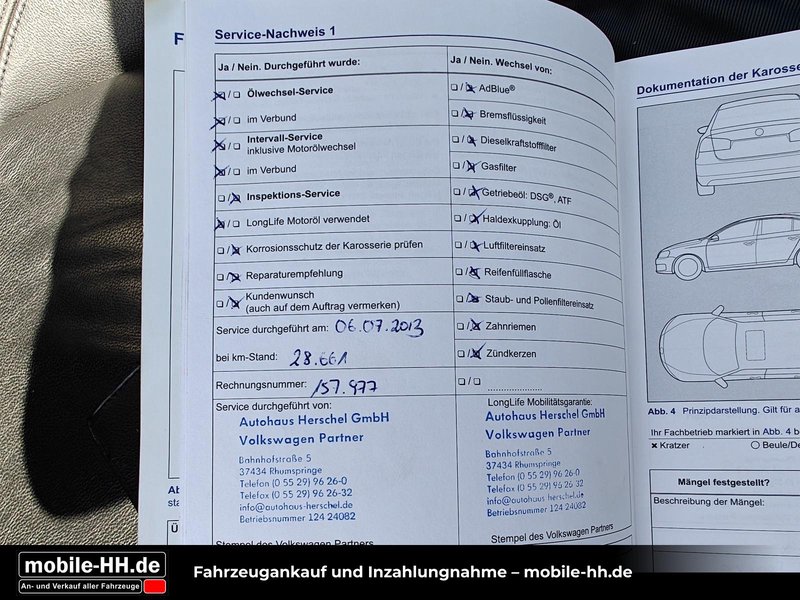 F
Service-Nachweis 1
Ja / Nein. Durchgeführt wurde:
Ölwechsel-Service
im Verbund
Intervall-Service
inklusive Motorölwechsel
im Verbund
Inspektions-Service
LongLife Motoröl verwendet
Korrosionsschutz der Karosserie prüfen
Reparaturempfehlung
Kundenwunsch
(auch auf dem Auftrag vermerken)
Service durchgeführt am: 06.07.2013
bei km-Stand: 28.661
Rechnungsnummer: 157.977
Service durchgeführt von:
Autohaus Herschel GmbH
Volkswagen Partner
Bahnhofstraße 5
37434 Rhumspringe
Telefon (0 55 29) 96 26-0
Telefax (0 55 29) 96 26-32
info@autohaus-herschel.de
Betriebsnummer 124 24082
Stempel des Volkswagen Partners
Ja / Nein. Wechsel von:
AdBlue®
Bremsflüssigkeit
Dieselkraftstofffilter
Gasfilter
Getriebeöl: DSG®, ATF
Haldexkupplung: Öl
Luftfiltereinsatz
Reifenfüllflasche
Staub- und Pollenfiltereinsatz
Zahnriemen
Zündkerzen
LongLife Mobilitätsgarantie:
Autohaus Herschel GmbH
Volkswagen Partner
Bahnhofstraße 5
37434 Rhumspringe
Telefon (0 55 29) 96 26-0
Telefax (0 55 29) 96 26 32
info@autohaus-herschel.de
Betriebsnummer 124 24082
Stempel des Volkswagen Partners
Dokumentation der Karosse
Abb. 4 Prinzipdarstellung. Gilt für a
Ihr Fachbetrieb markiert in Abb. 4 b
Kratzer
Beule/De
Mängel festgestellt?
Beschreibung der Mängel:
Ab
sta
mobile-HH.de
An- und Verkauf aller Fahrzeuge
Fahrzeugankauf und Inzahlungnahme – mobile-hh.de